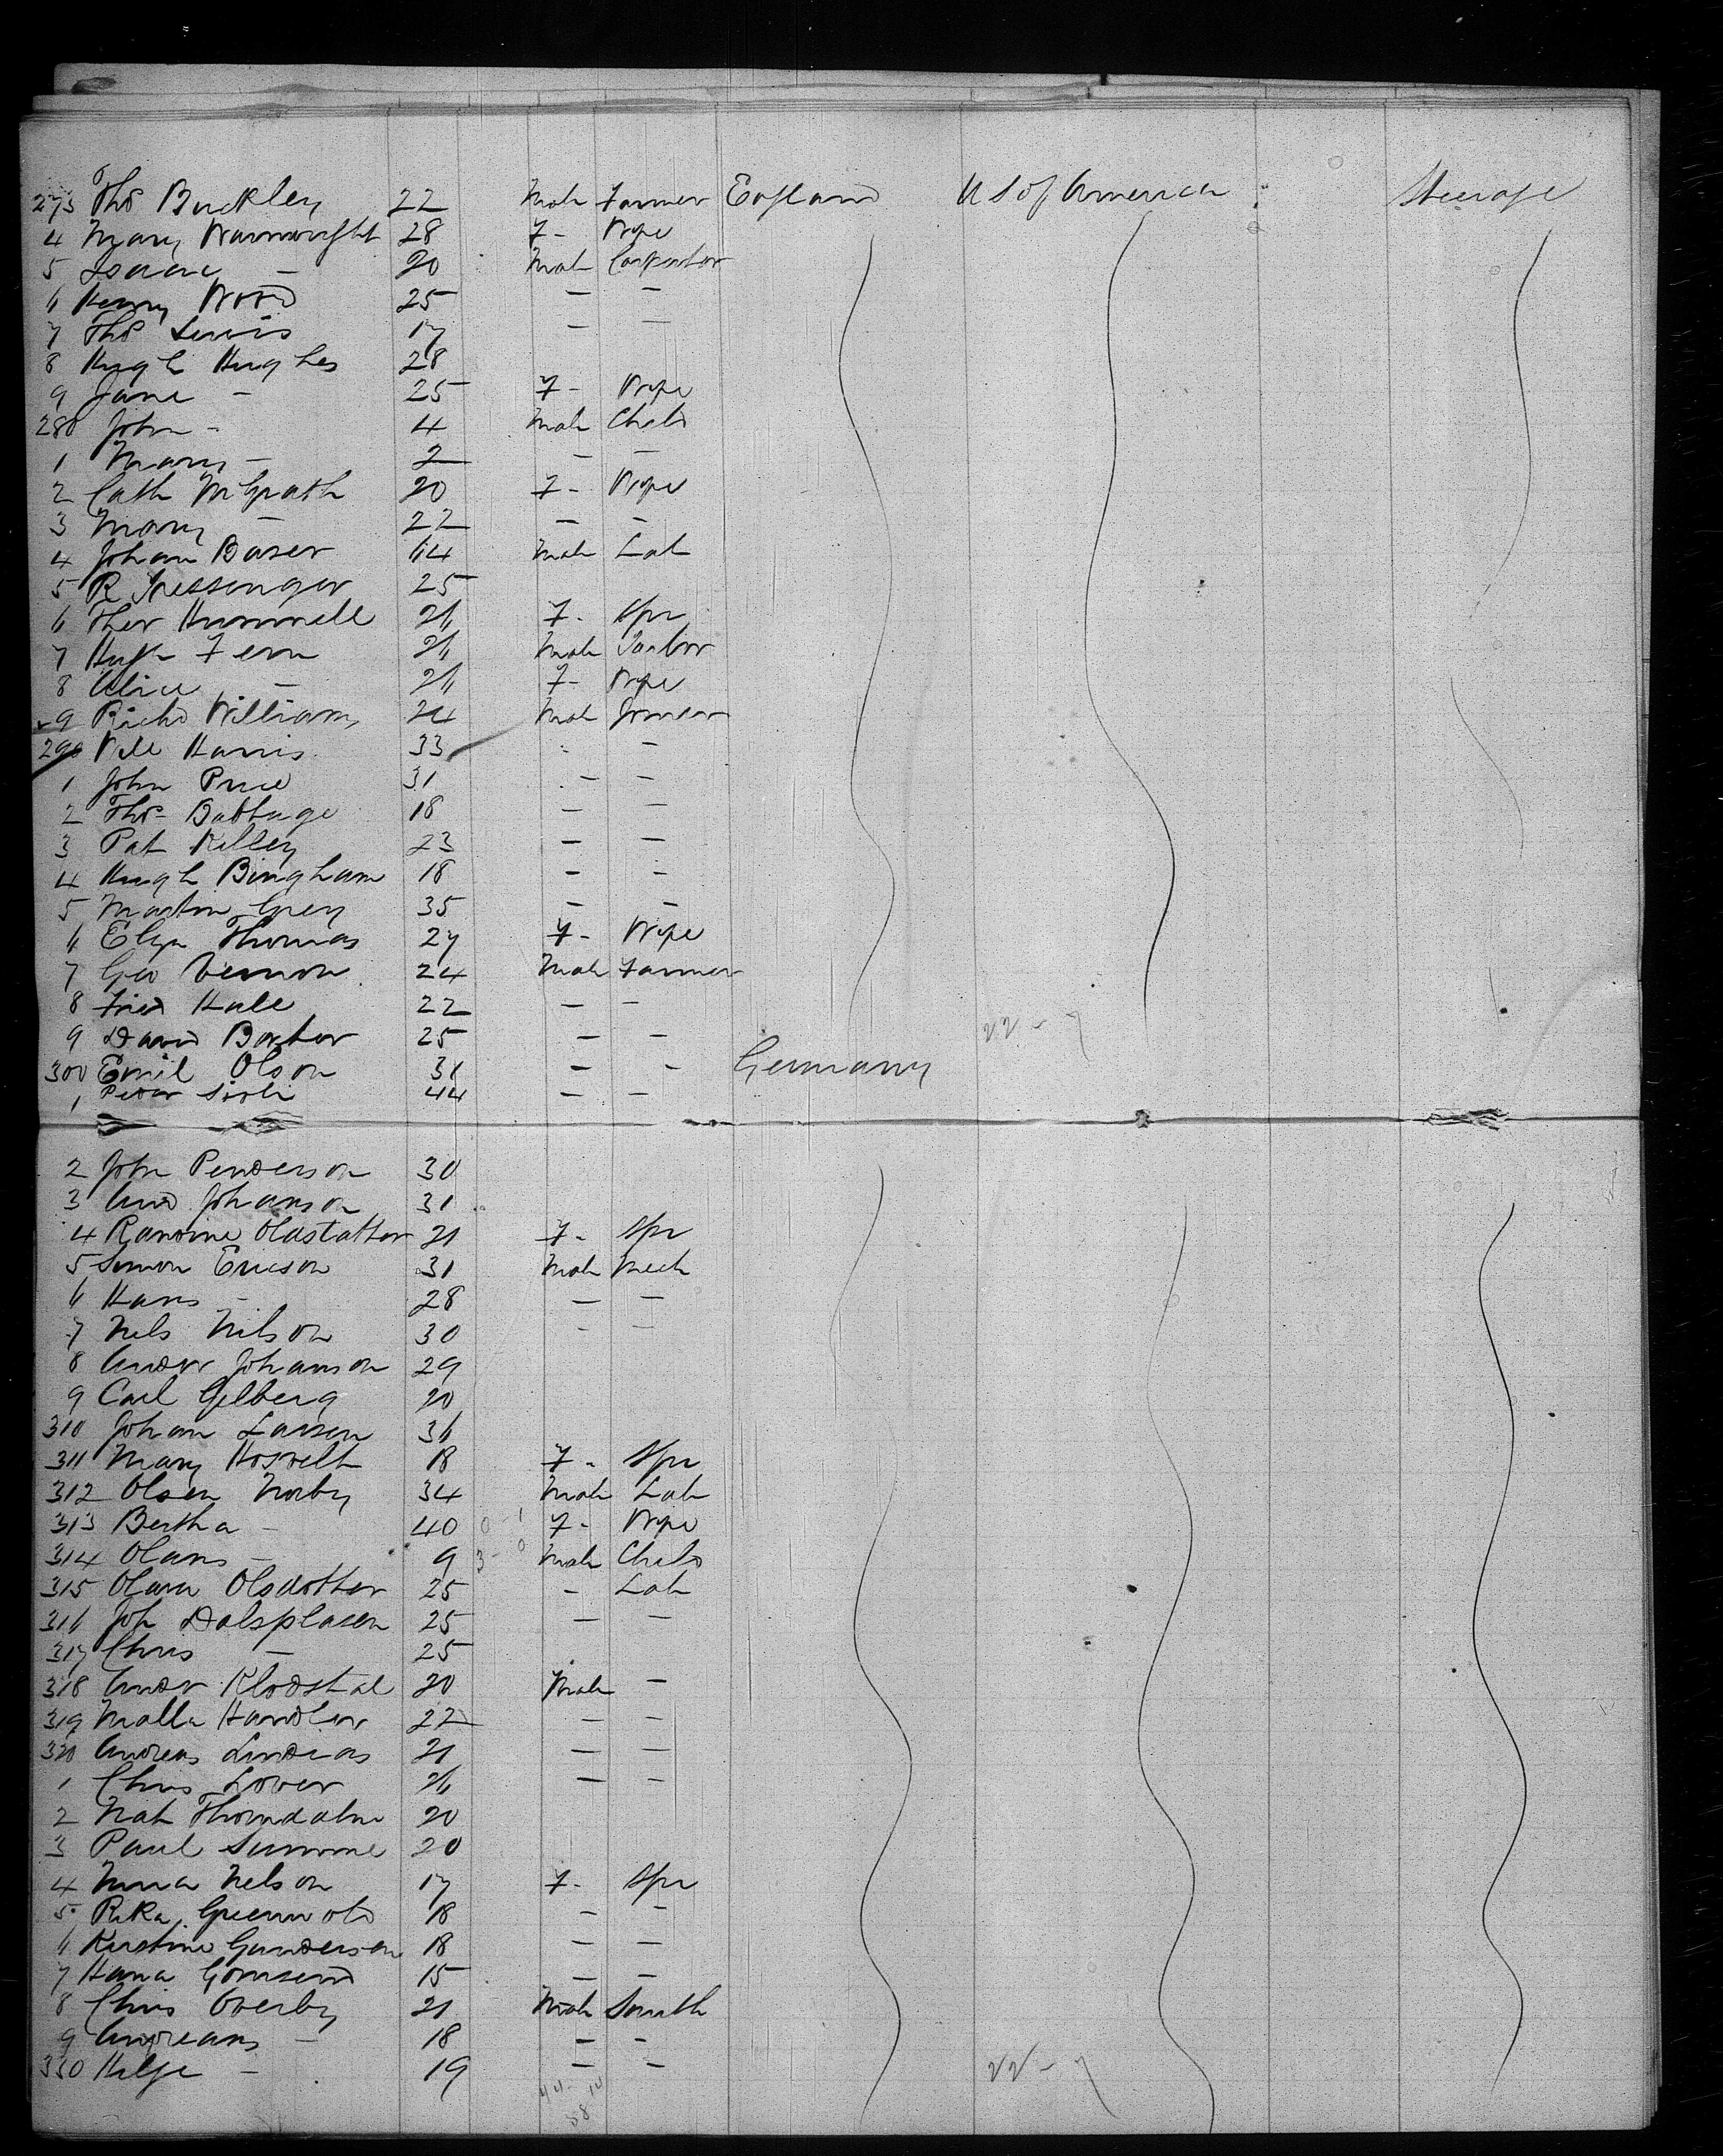 273 Thos Buckley 22 Male Farmer England U S of America Steerage
4 Mary Wainwright 28 F - Wife
5 Isaac — 20 Male Carpenter
6 Henry Wood 25 — —
7 Thos Lewis 17 — —
8 Hugh Hughes 28
9 Jane — 25 F - Wife
280 John - 4 Male Child
1 Mary — 2 — —
2 Cath McGrath 20 F - Wife
3 Mary — 22 — —
4 Johann Baser 64 Male Lab
5 R Messenger 25
6 Ther Hummell 26 F - Spr
7 Hugh Fern 26 Male
8 Alice — 26 F - Wife
9 Richd Williams 24 Male
290 Will Harris 33 - —
1 John Price 31 — —
2 Thos Babbage 18 — —
3 Pat Kelley 23 — —
4 Hugh Bingham 18 — —
5 Martin Grey 35 — —
6 Eliza Thomas 27 F - Wife
7 Geo Vernon 24 Male Farmer
8 Fred Hall 22 — —
9 David Baxter 25 — — 22 - 7
300 Emil Olson 31 — — Germany
1 Peter 44 — —
2 John Penderson 30
3 And Johanson 31
4 Randine Oldstatter 21 F - Spr
5 Simon Ericson 31 Male Mech
6 Hans - 28 — —
7 Nels Nilson 30 — —
8 Ander Johanson 29
9 Carl Gelberg 20
310 Johan Larsen 36
311 Mary Hosvelt 18 F - Spr
312 Olsen Norby 34 Male Lab
313 Bertha - 40 F - Wife
314 Olans — 9 Male Child
315 Olava Olsdotter 25 - Lab
316 Joh Dalsplasen 25 — —
317 Chris — 25
318 Ander Klodstal 20 Male —
319 Malla Handler 22 — —
320 Andreas Lindeas 21 — —
1 Chris Lover 26 — —
2 Nat Thorndalm 20
3 Paul Summe 20
4 Nelson 17 F - Spr
5 Rika 18 — —
6 Kirstine Gunderson 18 — —
7 Hana 15 — —
8 Chris Overby 21 Male Smith
9 Andreans — 18 — —
330 Helge — 19 — — 22 - 7